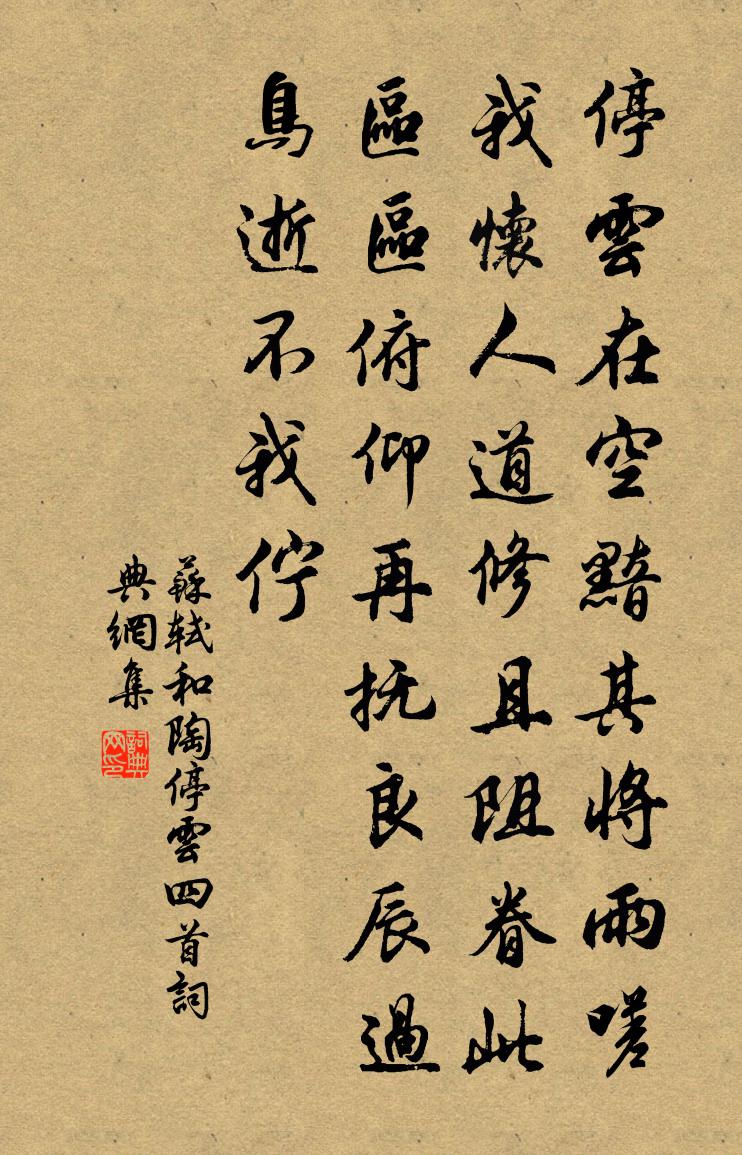 停雲在空黯其將雨嗟
我懷人道修且阻眷此
區區俯仰再抚良辰過
鳥逝不我佇
蘇軾和陶停雲四首詞
典網集
詞典
网印